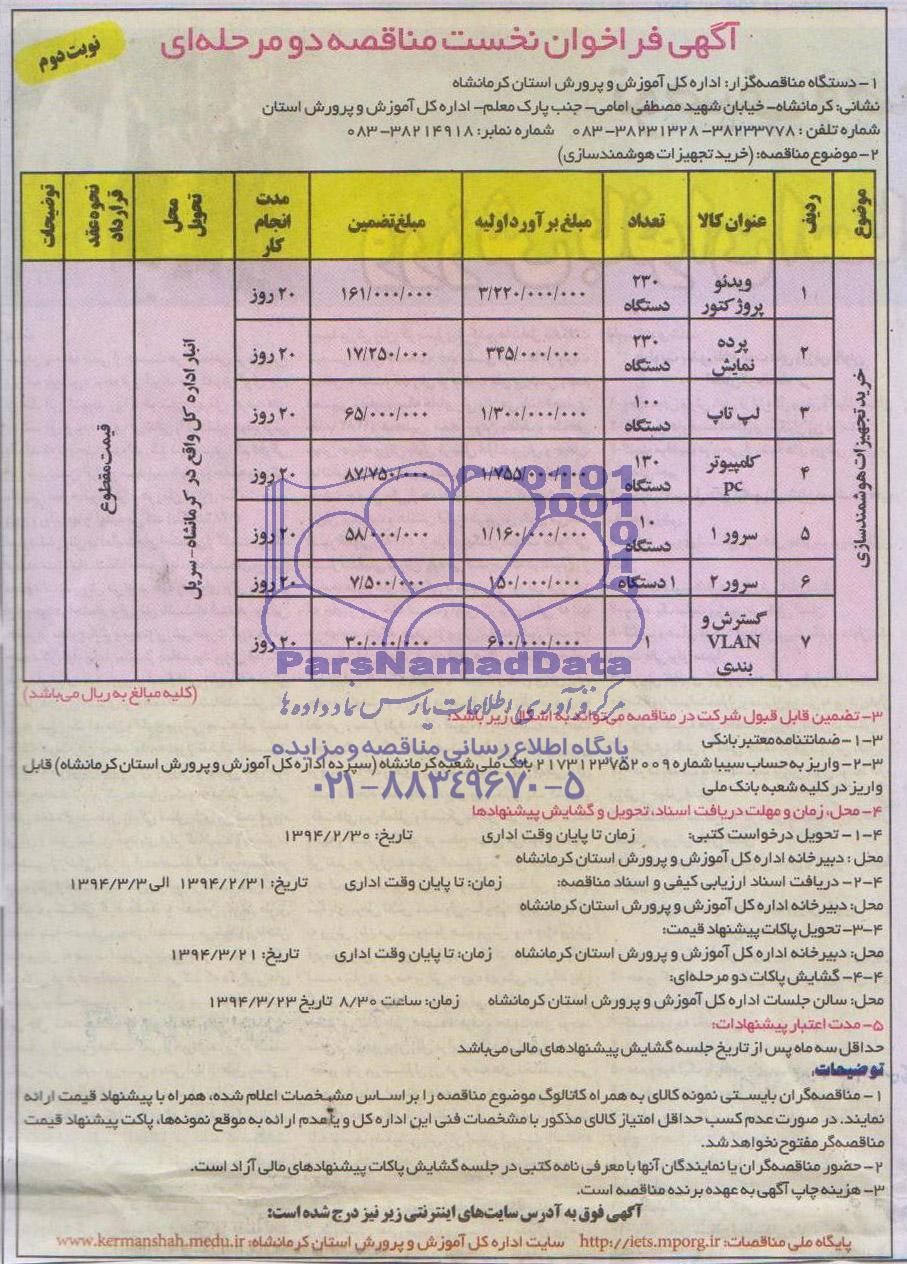 آگهی فراخوان نخست مناقصه دو مرحله‌ای
نوبت دوم
۱- دستگاه مناقصه‌گزار: اداره کل آموزش و پرورش استان کرمانشاه
نشانی: کرمانشاه- خیابان شهید مصطفی امامی- جنب پارک معلم- اداره کل آموزش و پرورش استان
شماره تلفن : ۳۸۲۳۳۷۷۸- ۳۸۲۳۱۳۲۸-۰۸۳ شماره نمابر: ۳۸۲۱۴۹۱۸-۰۸۳
۲- موضوع مناقصه: (خرید تجهیزات هوشمندسازی)
موضوع ردیف عنوان کالا تعداد مبلغ برآورد اولیه مبلغ تضمین مدت انجام کار محل تحویل نحوه عقد قرارداد توضیحات
خرید تجهیزات هوشمندسازی
۱ ویدئو پروژکتور ۲۳۰ دستگاه ۳/۲۲۰/۰۰۰/۰۰۰ ۱۶۱/۰۰۰/۰۰۰ ۲۰ روز
۲ پرده نمایش ۲۳۰ دستگاه ۳۴۵/۰۰۰/۰۰۰ ۱۷/۲۵۰/۰۰۰ ۲۰ روز
۳ لپ تاپ ۱۰۰ دستگاه ۱/۳۰۰/۰۰۰/۰۰۰ ۶۵/۰۰۰/۰۰۰ ۲۰ روز
۴ کامپیوتر pc ۱۳۰ دستگاه ۱/۷۵۵/۰۰۰/۰۰۰ ۸۷/۷۵۰/۰۰۰ ۲۰ روز
۵ سرور ۱ ۱۰ دستگاه ۱/۱۶۰/۰۰۰/۰۰۰ ۵۸/۰۰۰/۰۰۰ ۲۰ روز
۶ سرور ۲ ۱ دستگاه ۱۵۰/۰۰۰/۰۰۰ ۷/۵۰۰/۰۰۰ ۲۰ روز
۷ گسترش و VLAN بندی ۱ ۶۰۰/۰۰۰/۰۰۰ ۳۰/۰۰۰/۰۰۰ ۲۰ روز
انبار اداره کل واقع در کرمانشاه-سرپل
قیمت مقطوع
ParsNamadData
مرکز فن‌آوری اطلاعات پارس نماد داده‌ها
پایگاه اطلاع رسانی مناقصه و مزایده
۰۲۱-۸۸۳۴۹۶۷۰-۵
(کلیه مبالغ به ریال می‌باشد)
۳- تضمین قابل قبول شرکت در مناقصه می‌تواند به اشکال زیر باشد:
۳-۱- ضمانتنامه معتبر بانکی
۳-۲- واریز به حساب سیبا شماره ۲۱۷۳۱۲۳۷۵۲۰۰۹ بانک ملی شعبه کرمانشاه (سپرده اداره کل آموزش و پرورش استان کرمانشاه) قابل
واریز در کلیه شعبه بانک ملی
۴- محل، زمان و مهلت دریافت اسناد، تحویل و گشایش پیشنهادها
۴-۱- تحویل درخواست کتبی: زمان تا پایان وقت اداری تاریخ: ۱۳۹۴/۲/۳۰
محل : دبیرخانه اداره کل آموزش و پرورش استان کرمانشاه
۴-۲- دریافت اسناد ارزیابی کیفی و اسناد مناقصه: زمان: تا پایان وقت اداری تاریخ: ۱۳۹۴/۲/۳۱ الی ۱۳۹۴/۳/۳
محل: دبیرخانه اداره کل آموزش و پرورش استان کرمانشاه
۴-۳- تحویل پاکات پیشنهاد قیمت:
محل: دبیرخانه اداره کل آموزش و پرورش استان کرمانشاه زمان: تا پایان وقت اداری تاریخ: ۱۳۹۴/۳/۲۱
۴-۴- گشایش پاکات دو مرحله‌ای:
محل: سالن جلسات اداره کل آموزش و پرورش استان کرمانشاه زمان: ساعت ۸/۳۰ تاریخ ۱۳۹۴/۳/۲۳
۵- مدت اعتبار پیشنهادات:
حداقل سه ماه پس از تاریخ جلسه گشایش پیشنهادهای مالی می‌باشد
توضیحات:
۱- مناقصه‌گران بایستی نمونه کالای به همراه کاتالوگ موضوع مناقصه را بر اساس مشخصات اعلام شده، همراه با پیشنهاد قیمت ارائه
نمایند. در صورت عدم کسب حداقل امتیاز کالای مذکور با مشخصات فنی این اداره کل و یا عدم ارائه به موقع نمونه‌ها، پاکت پیشنهاد قیمت
مناقصه‌گر مفتوح نخواهد شد.
۲- حضور مناقصه‌گران یا نمایندگان آنها با معرفی نامه کتبی در جلسه گشایش پاکات پیشنهادهای مالی آزاد است.
۳- هزینه چاپ آگهی به عهده برنده مناقصه است.
آگهی فوق به آدرس سایت‌های اینترنتی زیر نیز درج شده است:
پایگاه ملی مناقصات: http://iets.mporg.ir سایت اداره کل آموزش و پرورش استان کرمانشاه: www.kermanshah.medu.ir